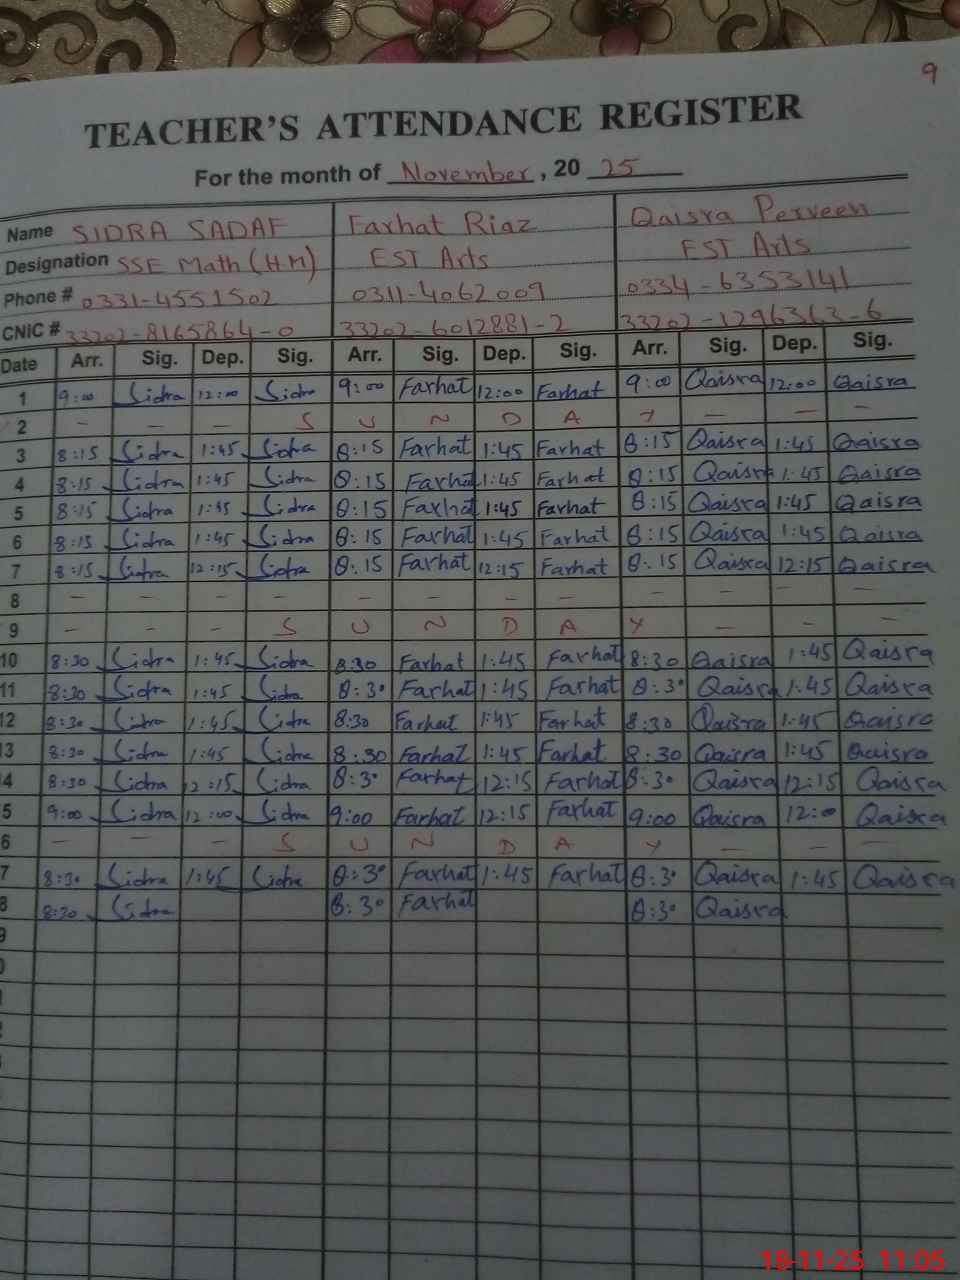 9
TEACHER'S ATTENDANCE REGISTER
For the month of November, 20 25
Name SIDRA SADAF Farhat Riaz Qaisra Perveen
Designation SSE Math (H.M) EST Arts EST Arts
Phone # 0331-4551502 0311-4062009 0334-6353141
CNIC # 33202-8165864-0 33202-6012881-2 33202-1296363-6
Date Arr. Sig. Dep. Sig. Arr. Sig. Dep. Sig. Arr. Sig. Dep. Sig.
1 9:00 Sidra 12:00 Sidra 9:00 Farhat 12:00 Farhat 9:00 Qaisra 12:00 Qaisra
2 - - - S U N D A Y - - -
3 8:15 Sidra 1:45 Sidra 8:15 Farhat 1:45 Farhat 8:15 Qaisra 1:45 Qaisra
4 8:15 Sidra 1:45 Sidra 8:15 Farhat 1:45 Farhat 8:15 Qaisra 1:45 Qaisra
5 8:15 Sidra 1:45 Sidra 8:15 Farhat 1:45 Farhat 8:15 Qaisra 1:45 Qaisra
6 8:15 Sidra 1:45 Sidra 8:15 Farhat 1:45 Farhat 8:15 Qaisra 1:45 Qaisra
7 8:15 Sidra 12:15 Sidra 8:15 Farhat 12:15 Farhat 8:15 Qaisra 12:15 Qaisra
8 - - - - - - - - - - - -
9 - - - S U N D A Y - - -
10 8:30 Sidra 1:45 Sidra 8:30 Farhat 1:45 Farhat 8:30 Qaisra 1:45 Qaisra
11 8:30 Sidra 1:45 Sidra 8:30 Farhat 1:45 Farhat 8:30 Qaisra 1:45 Qaisra
12 8:30 Sidra 1:45 Sidra 8:30 Farhat 1:45 Farhat 8:30 Qaisra 1:45 Qaisra
13 8:30 Sidra 1:45 Sidra 8:30 Farhat 1:45 Farhat 8:30 Qaisra 1:45 Qaisra
4 8:30 Sidra 12:15 Sidra 8:30 Farhat 12:15 Farhat 8:30 Qaisra 12:15 Qaisra
5 9:00 Sidra 12:00 Sidra 9:00 Farhat 12:15 Farhat 9:00 Qaisra 12:00 Qaisra
6 - - - S U N D A Y - - -
7 8:30 Sidra 1:45 Sidra 8:30 Farhat 1:45 Farhat 8:30 Qaisra 1:45 Qaisra
8 8:30 Sidra 8:30 Farhat 8:30 Qaisra
9
0
18-11-25 11:05